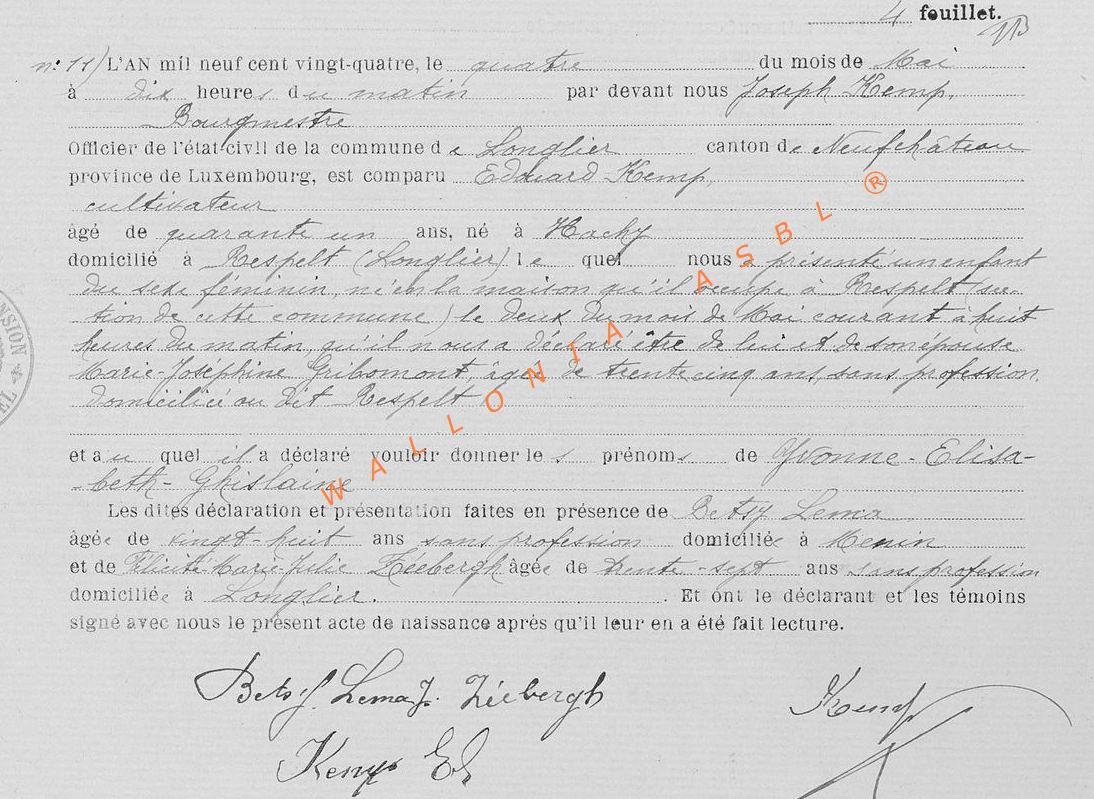 4 fouillet.
n: 11) L'AN mil neuf cent vingt-quatre, le quatre du mois de Mai
à dix heures du matin par devant nous Joseph Kemp,
Bourgmestre
Officier de l'état-civil de la commune de Longlier canton de Neufchâteau
province de Luxembourg, est comparu Edouard Kemp,
cultivateur
âgé de quarante un ans, né à Hachy
domicilié à Respelt (Longlier) lequel nous a présenté un enfant
du sexe féminin, né en la maison qu'il occupe à Respelt (sec-
tion de cette commune) le deux du mois de Mai courant à huit
heures du matin, qu'il nous a déclaré être de lui et de son épouse
Marie-Joséphine Gribomont âgée de trente cinq ans, sans profession,
domiciliée au dit Respelt
et auquel il a déclaré vouloir donner les prénoms de Yvonne-Elisa-
-beth-Ghislaine
Les dites déclaration et présentation faites en présence de Betsy Lema
âgée de vingt-huit ans sans profession domiciliée à Menin
et de Félicité Marie Julie Zéebergh âgée de trente-sept ans sans profession
domiciliée à Longlier. Et ont le déclarant et les témoins
signé avec nous le présent acte de naissance après qu'il leur en a été fait lecture.
Betsy Lema J. Zéebergh Kemp
Kemp Ed
WALLONIA ASBL ®